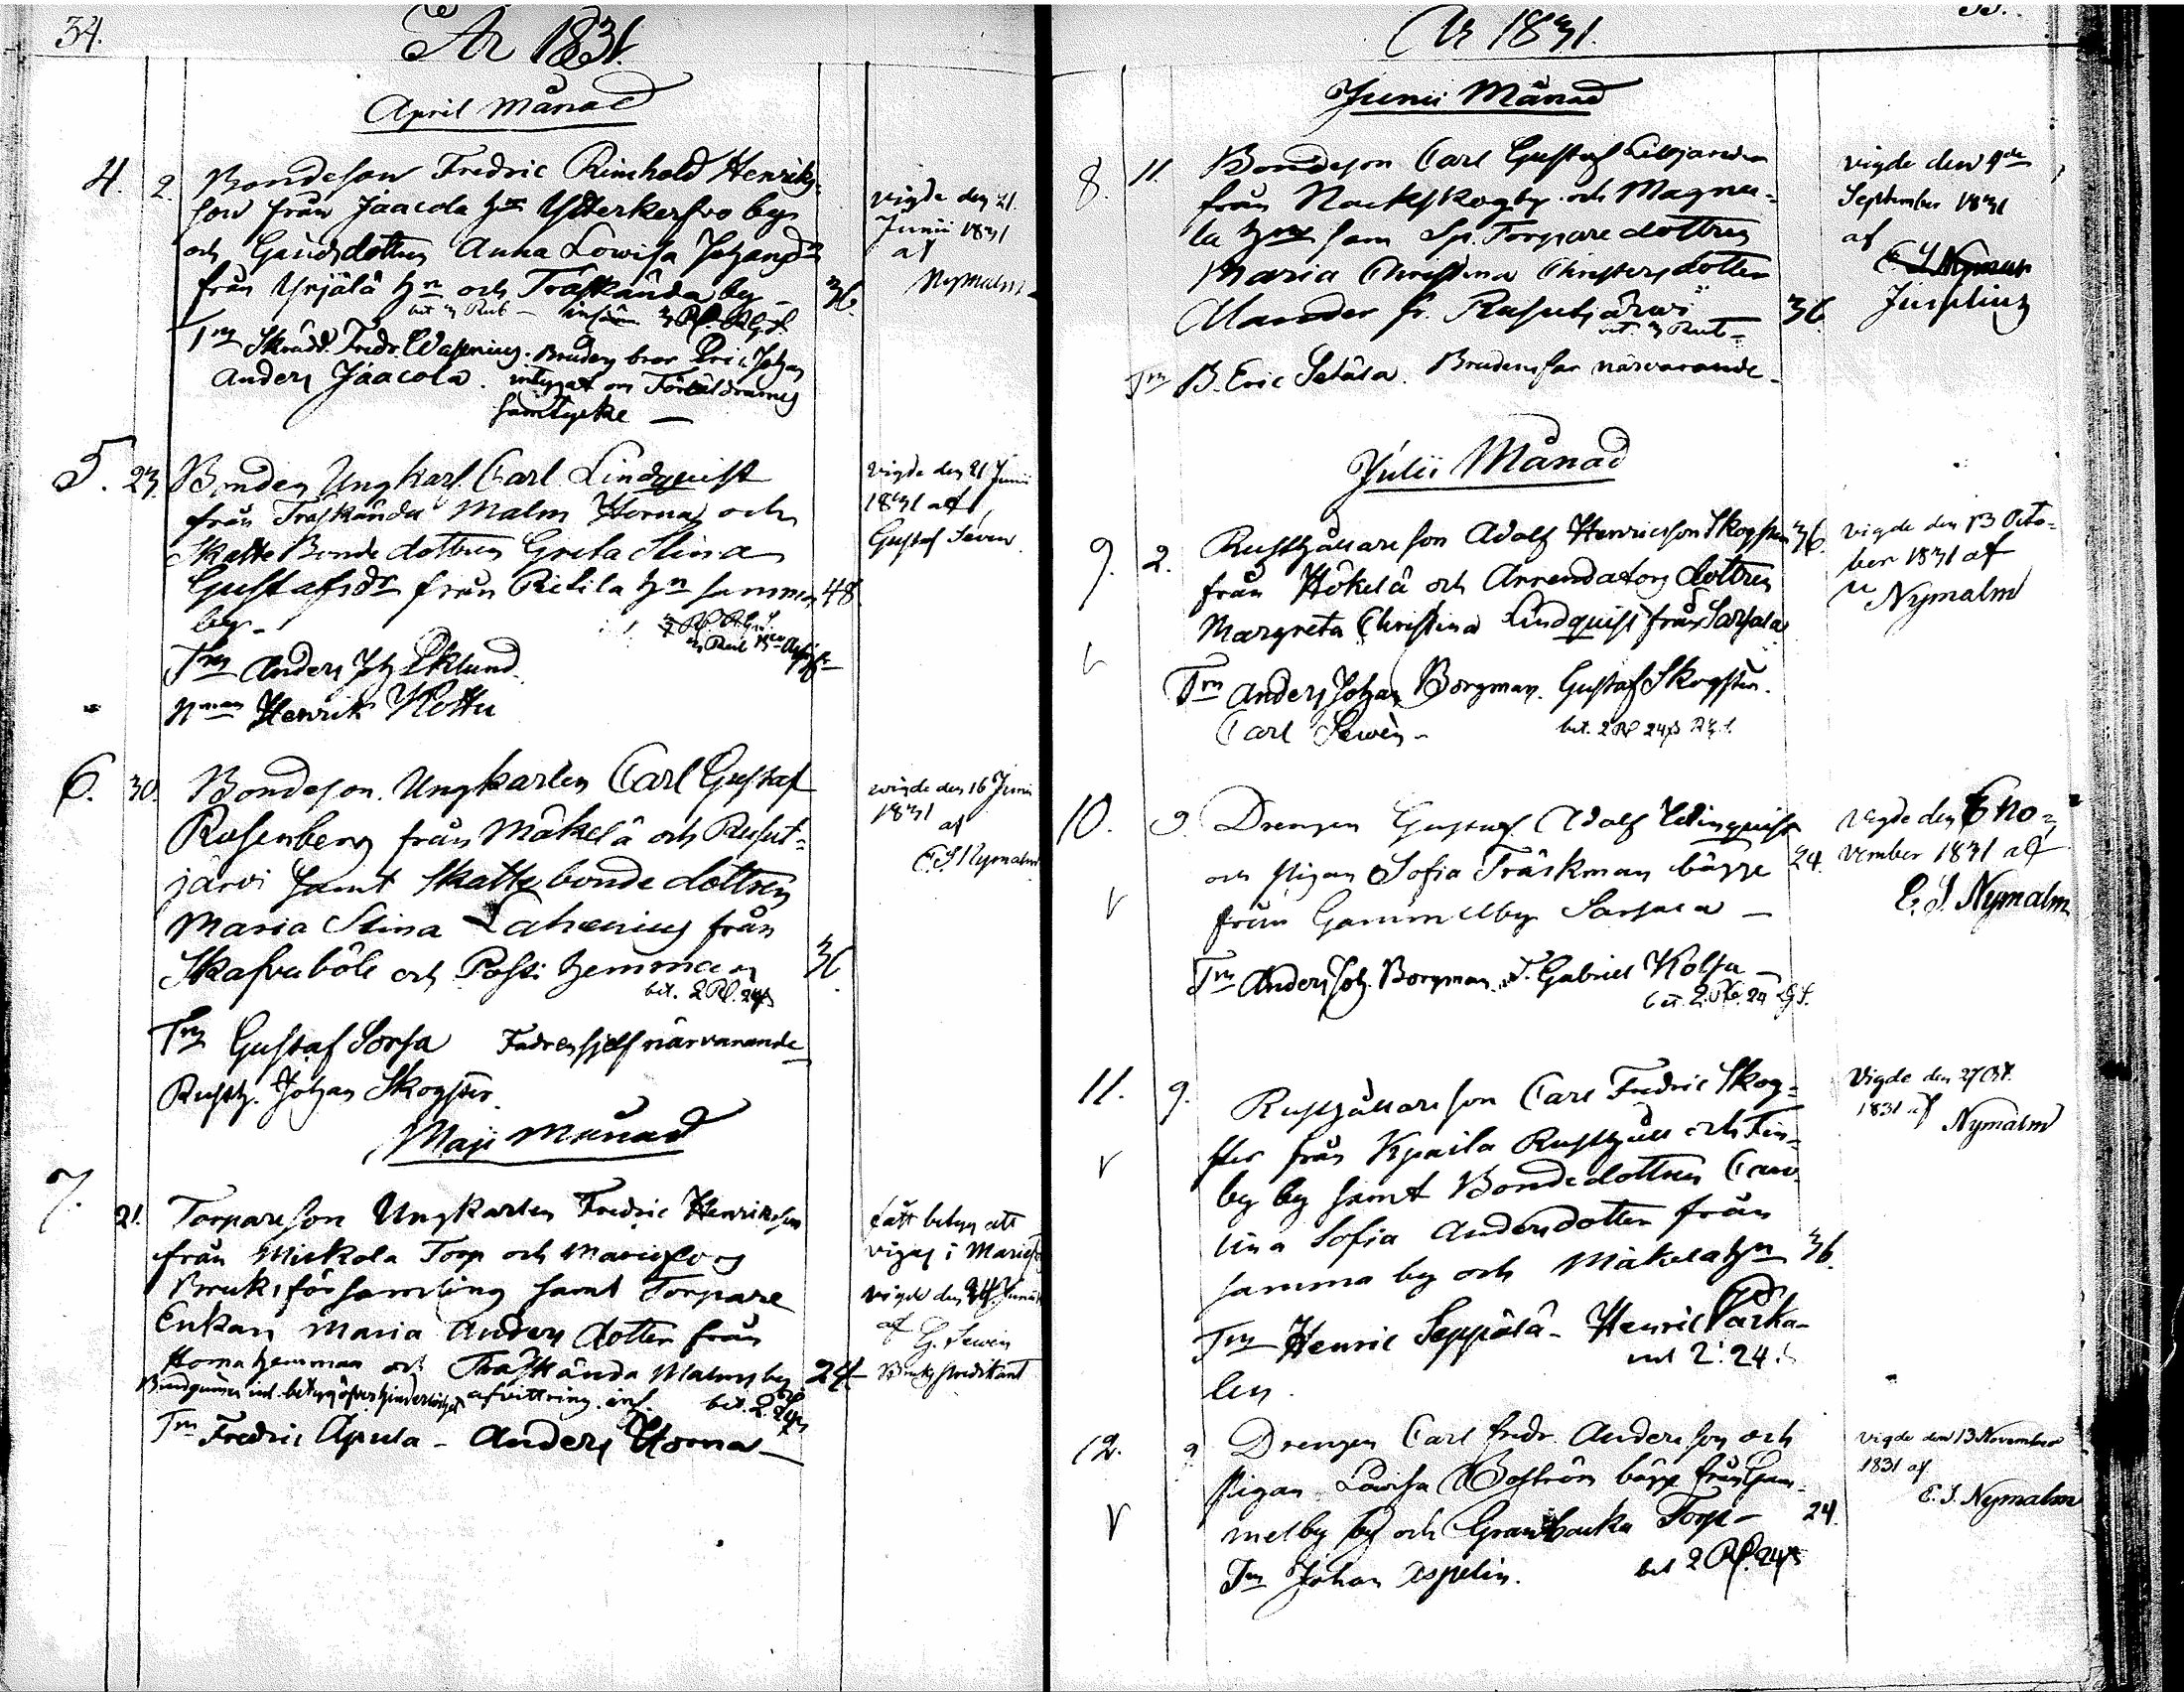 34.
År 1831.
April Månad
4. 2. Bondeson Fredric Reinhold Henrics-
son från Jaacola hn Ytterkerfvo by
och Gårdsdottren Anna Lowisa Johansdr
från Yrjälä hn och Träskända by 36.
Tm Skrädd. Fredr. Brudens bror Eric Johan
Anders Jaacola. intygat om Föräldrarnes
samtycke
vigde den 21.
Junii 1831
af
Nymalm
5. 23. Bonden Ungkarl Carl Lindquist
från Träskända Malm Horna och
Skatte Bonde dottren Greta Stina
Gustafsdr från Pietila hn samma 48.
by.
Tm Anders Joh Eklund
Nman Henrik Kottu
vigde den 21 Junii
1831 af
Gustaf Seven
6. 30. Bondeson. Ungkarlen Carl Gustaf
Rosenberg från Mäkelä och Rusut-
järvi samt Skattebonde dottren
Maria Stina Lahenius från
Skafvaböle och Possi hemman 36.
bet. 2 Rd. 24
Tm Gustaf Sorsa Fadren sjelf närvarande
Rusth. Johan Skogster
vigde den 16 Junii
1831
af
E. J. Nymalm
Maji Månad
7. 21. Torpareson Ungkarlen Fredric Henrikson
från Mickola Torp och Mariefors
Bruks församling samt Torpare
Enkan Maria Anders dotter från
Horna hemman och Träskända Malms by 24
afvittring. bet. 2. 24
Tm Fredric Apula - Anders Horna
fått betyg att
vigas i Mariefo
vigde den 24 Junii
af G. Sewén
Bruks predikant
År 1831.
Junii Månad
8. 11. Bondeson Carl Gustaf
från Nackskogby och Magnu-
la hn sam Sp. Torpare dottren
Maria Christina Christersdotter
Alander fr. Rusutjärwi 36
Tm B. Eric Setälä. Brudens far närvarande
vigde den 4de
September 1831
af
E. J. Nymalm
Juselius
Julii Månad
9. 2. Rusthållareson Adolf Henricsson Skogster 36.
från Hökelä och Arrendators dottren
Margreta Christina Lindquist från Sarsala
Tm Anders Johan Borgman. Gustaf Skogster.
Carl Sewén bet. 2 Rd 24
vigde den 13 Octo-
ber 1831 af
Nymalm
10. 9. Drengen Gustaf Adolf
och pigan Sofia Träskman bägge 24.
från Gammelby Sarsala
Tm Anders Joh. Borgman. T. Gabriel Kolsa
vigde den 6 No-
vember 1831 af
E. J. Nymalm
11. 9. Rusthållareson Carl Fredric Skog-
ster från Rusthåll och Fin-
by by samt Bondedottren Caro-
lina Sofia Andersdotter från
samma by och Mäkelä hn 36.
Tm Henric Seppälä - Henric Parka-
len. 2. 24.
Vigde den 27 Oct.
1831 af
Nymalm
12. 9. Drengen Carl Fredr. Andersson och
pigan Lowisa Boström bägge från Gam-
melby by och Granbacka Torp 24.
Tm Johan Aspelin. bet 2 Rd. 24
vigde den 13 November
1831 af
E. J. Nymalm